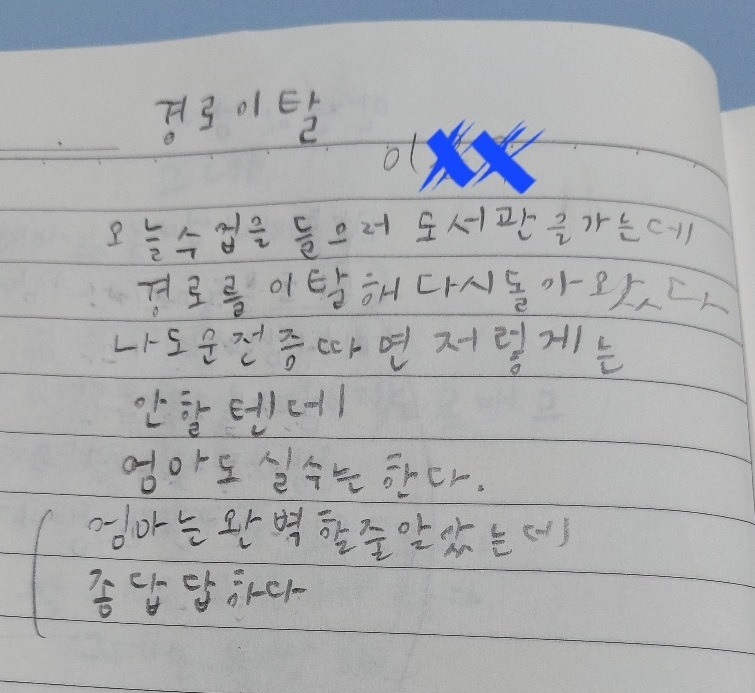 경로이탈
이
오늘수업을 들으러 도서관을가는데
경로를 이탈해 다시돌아왔다
나도운전증따면 저렇게는
안할텐데
엄마도 실수는 한다.
엄마는완벽할줄알았는데
좀답답하다